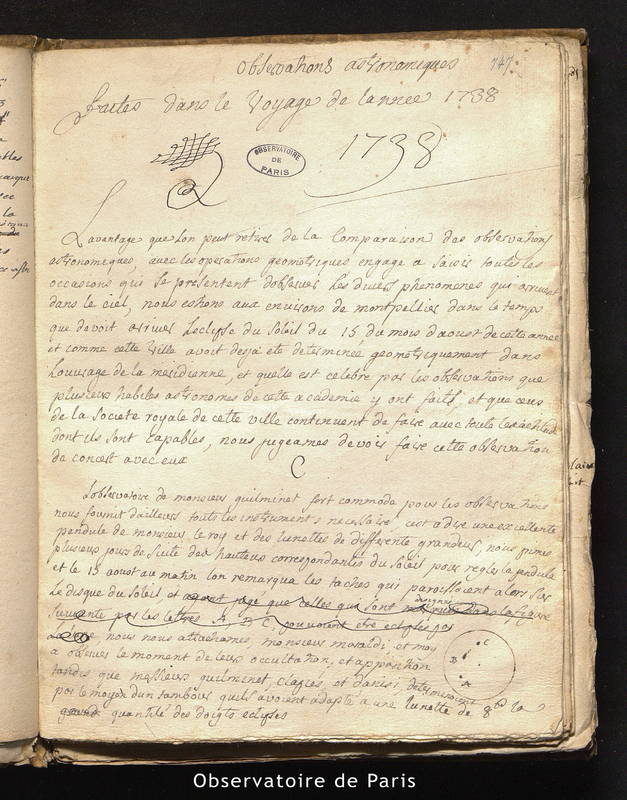 Observations astronomiques 747.
faites dans le Voyage de lannee 1738
OBSERVATOIRE
DE
PARIS
1738
Lavantage que lon peut retirer de la Comparaison des observations
astronomiques, avec les operations geometriques engage a saisir toutes les
occasions qui se presentent dobserver les divers phenomenes qui arrivent
dans le ciel, nous estions aux environs de montpellier dans le temps
que devoit arriver leclypse du Soleil du 15 du mois daoust de cette annee
et comme cette Ville avoit desja ete determinée geometriquement dans
louvrage de la meridienne, et quelle est celebre par les observations que
plusieurs habiles astronomes de cette academie y ont faits, et que ceux
de la Societé royale de cette ville continuent de faire avec toute
dont ils sont capables, nous jugeames devoir faire cette observation
de concert avec eux
C
Lobservatoire de monsieur guilminet fort commode pour les observations
nous fournit dailleurs touts les instruments necessaire, cest adire une excellente
pendule de monsieur le roy et des lunettes de differente grandeur, nous primes
plusieurs jours de suite des hauteurs correspondantes du Soleil pour regler la pendule
et le 15 aoust au matin lon remarqua les taches qui paroissoient alors sur
le disque du Soleil et ayant jugé que celles qui sont designées dans la figure
Suivante par les lettres A, B, C, pouvoient etre eclipsées par
la Lune, nous nous attachames, monsieur maraldi, et moy
a observer le moment de leurs occultation, et apparition
tandis que messieurs guilminet clapies, et danisi, determinoient
par le moyen dun tambour quils avoient adapté a une lunette de 8 pds la
quantité des doigts eclipses
C
B
A
Observatoire de Paris